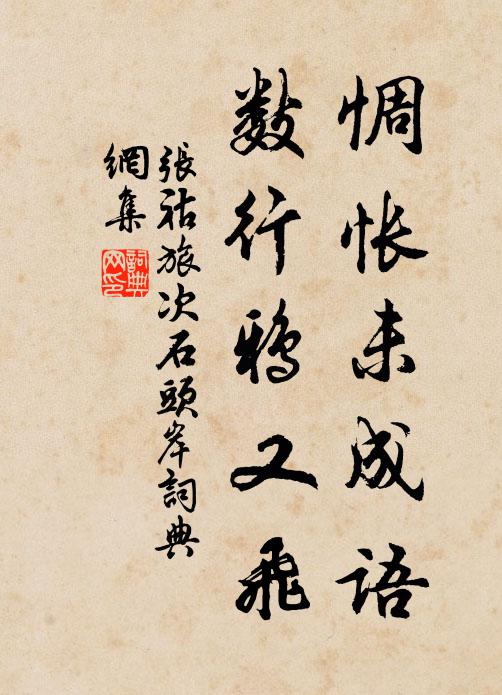 惆怅未成语
数行鸦又飞
張祜旅次石頭岸詞典
網集
詞典
网印